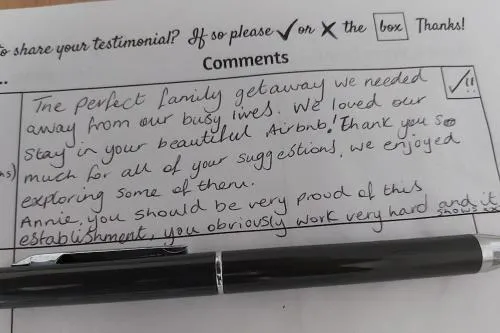 to share your testimonial? If so please ✓ or ✗ the box Thanks!
Comments
The perfect family getaway we needed
away from our busy lives. We loved our
stay in your beautiful Airbnb! Thank you so
much for all of your suggestions, we enjoyed
exploring some of them.
Annie, you should be very proud of this
establishment, you obviously work very hard and it
shows